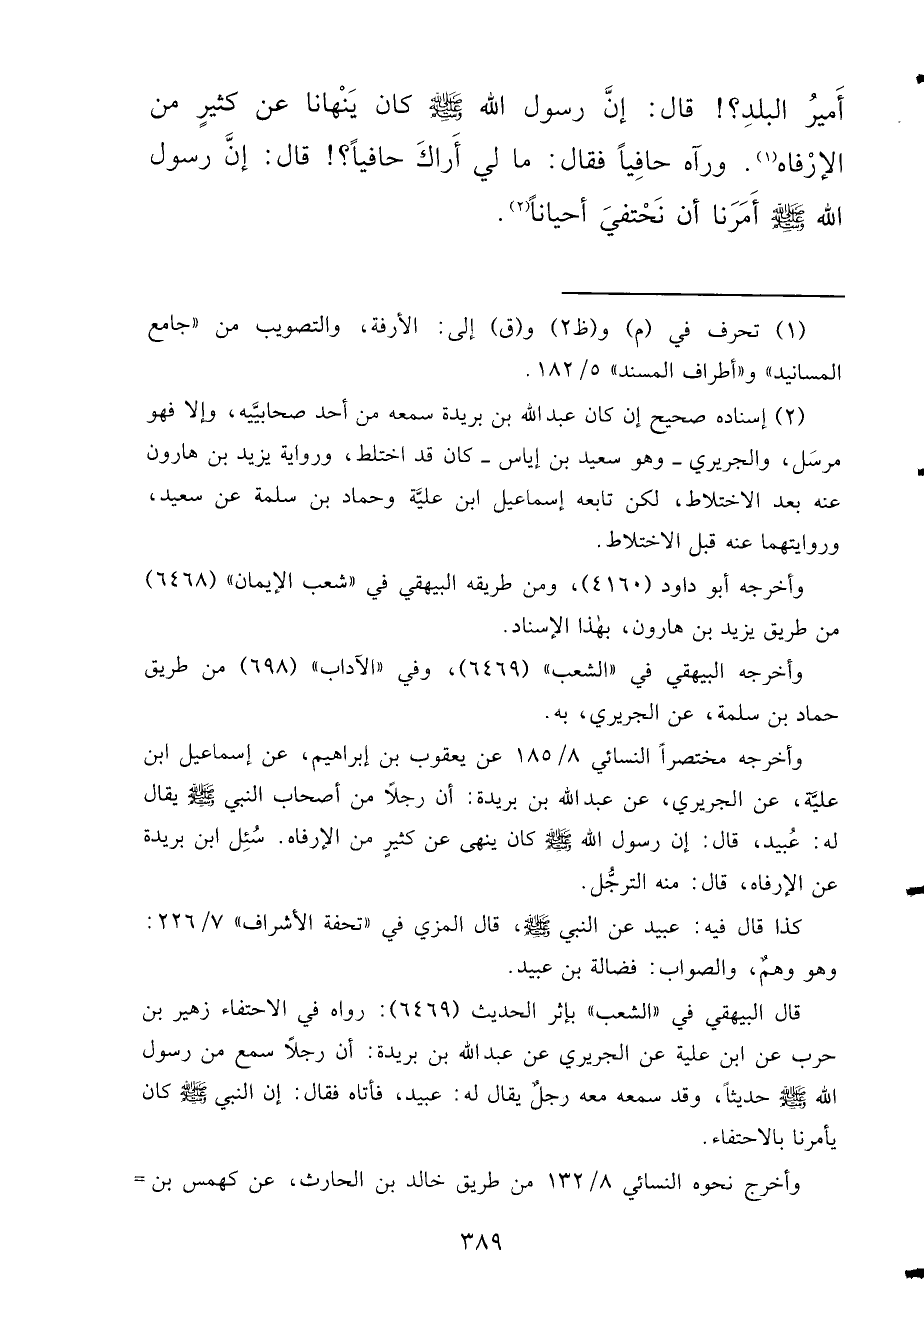 أَميرُ البلدِ؟! قال: إنَّ رسول الله ﷺ كان يَنْهانا عن كثيرٍ من
الإرْفاه(١). ورآه حافِياً فقال: ما لي أَراكَ حافياً؟! قال: إنَّ رسول
الله ﷺ أَمَرَنا أن نَحْتفيَ أحياناً(٢).
(١) تحرف في (م) و(ظ٢) و(ق) إلى: الأرفة، والتصويب من «جامع
المسانيد» و«أطراف المسند» ٥/ ١٨٢.
(٢) إسناده صحيح إن كان عبدالله بن بريدة سمعه من أحد صحابيَّيه، وإلا فهو
مرسَل، والجريري ـ وهو سعيد بن إياس ـ كان قد اختلط، ورواية يزيد بن هارون
عنه بعد الاختلاط، لكن تابعه إسماعيل ابن عليَّة وحماد بن سلمة عن سعيد،
وروايتهما عنه قبل الاختلاط.
وأخرجه أبو داود (٤١٦٠)، ومن طريقه البيهقي في «شعب الإيمان» (٦٤٦٨)
من طريق يزيد بن هارون، بهٰذا الإسناد.
وأخرجه البيهقي في «الشعب» (٦٤٦٩)، وفي «الآداب» (٦٩٨) من طريق
حماد بن سلمة، عن الجريري، به.
وأخرجه مختصراً النسائي ٨/ ١٨٥ عن يعقوب بن إبراهيم، عن إسماعيل ابن
عليَّة، عن الجريري، عن عبدالله بن بريدة: أن رجلاً من أصحاب النبي ﷺ يقال
له: عُبيد، قال: إن رسول الله ﷺ كان ينهى عن كثيرٍ من الإرفاه. سُئِل ابن بريدة
عن الإرفاه، قال: منه الترجُّل.
كذا قال فيه: عبيد عن النبي ﷺ، قال المزي في «تحفة الأشراف» ٧/ ٢٢٦:
وهو وهمٌ، والصواب: فضالة بن عبيد.
قال البيهقي في «الشعب» بإثر الحديث (٦٤٦٩): رواه في الاحتفاء زهير بن
حرب عن ابن علية عن الجريري عن عبدالله بن بريدة: أن رجلاً سمع من رسول
الله ﷺ حديثاً، وقد سمعه معه رجلٌ يقال له: عبيد، فأتاه فقال: إن النبي ﷺ كان
يأمرنا بالاحتفاء.
وأخرج نحوه النسائي ٨/ ١٣٢ من طريق خالد بن الحارث، عن كهمس بن =
٣٨٩